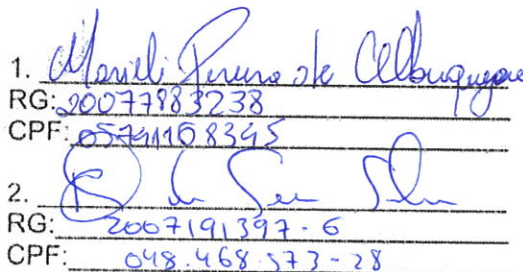 1. Marieli Pereira de Albuquerque
RG: 20077883238
CPF: 05791168395
2.
RG: 2007191397-6
CPF: 048.468.573-28